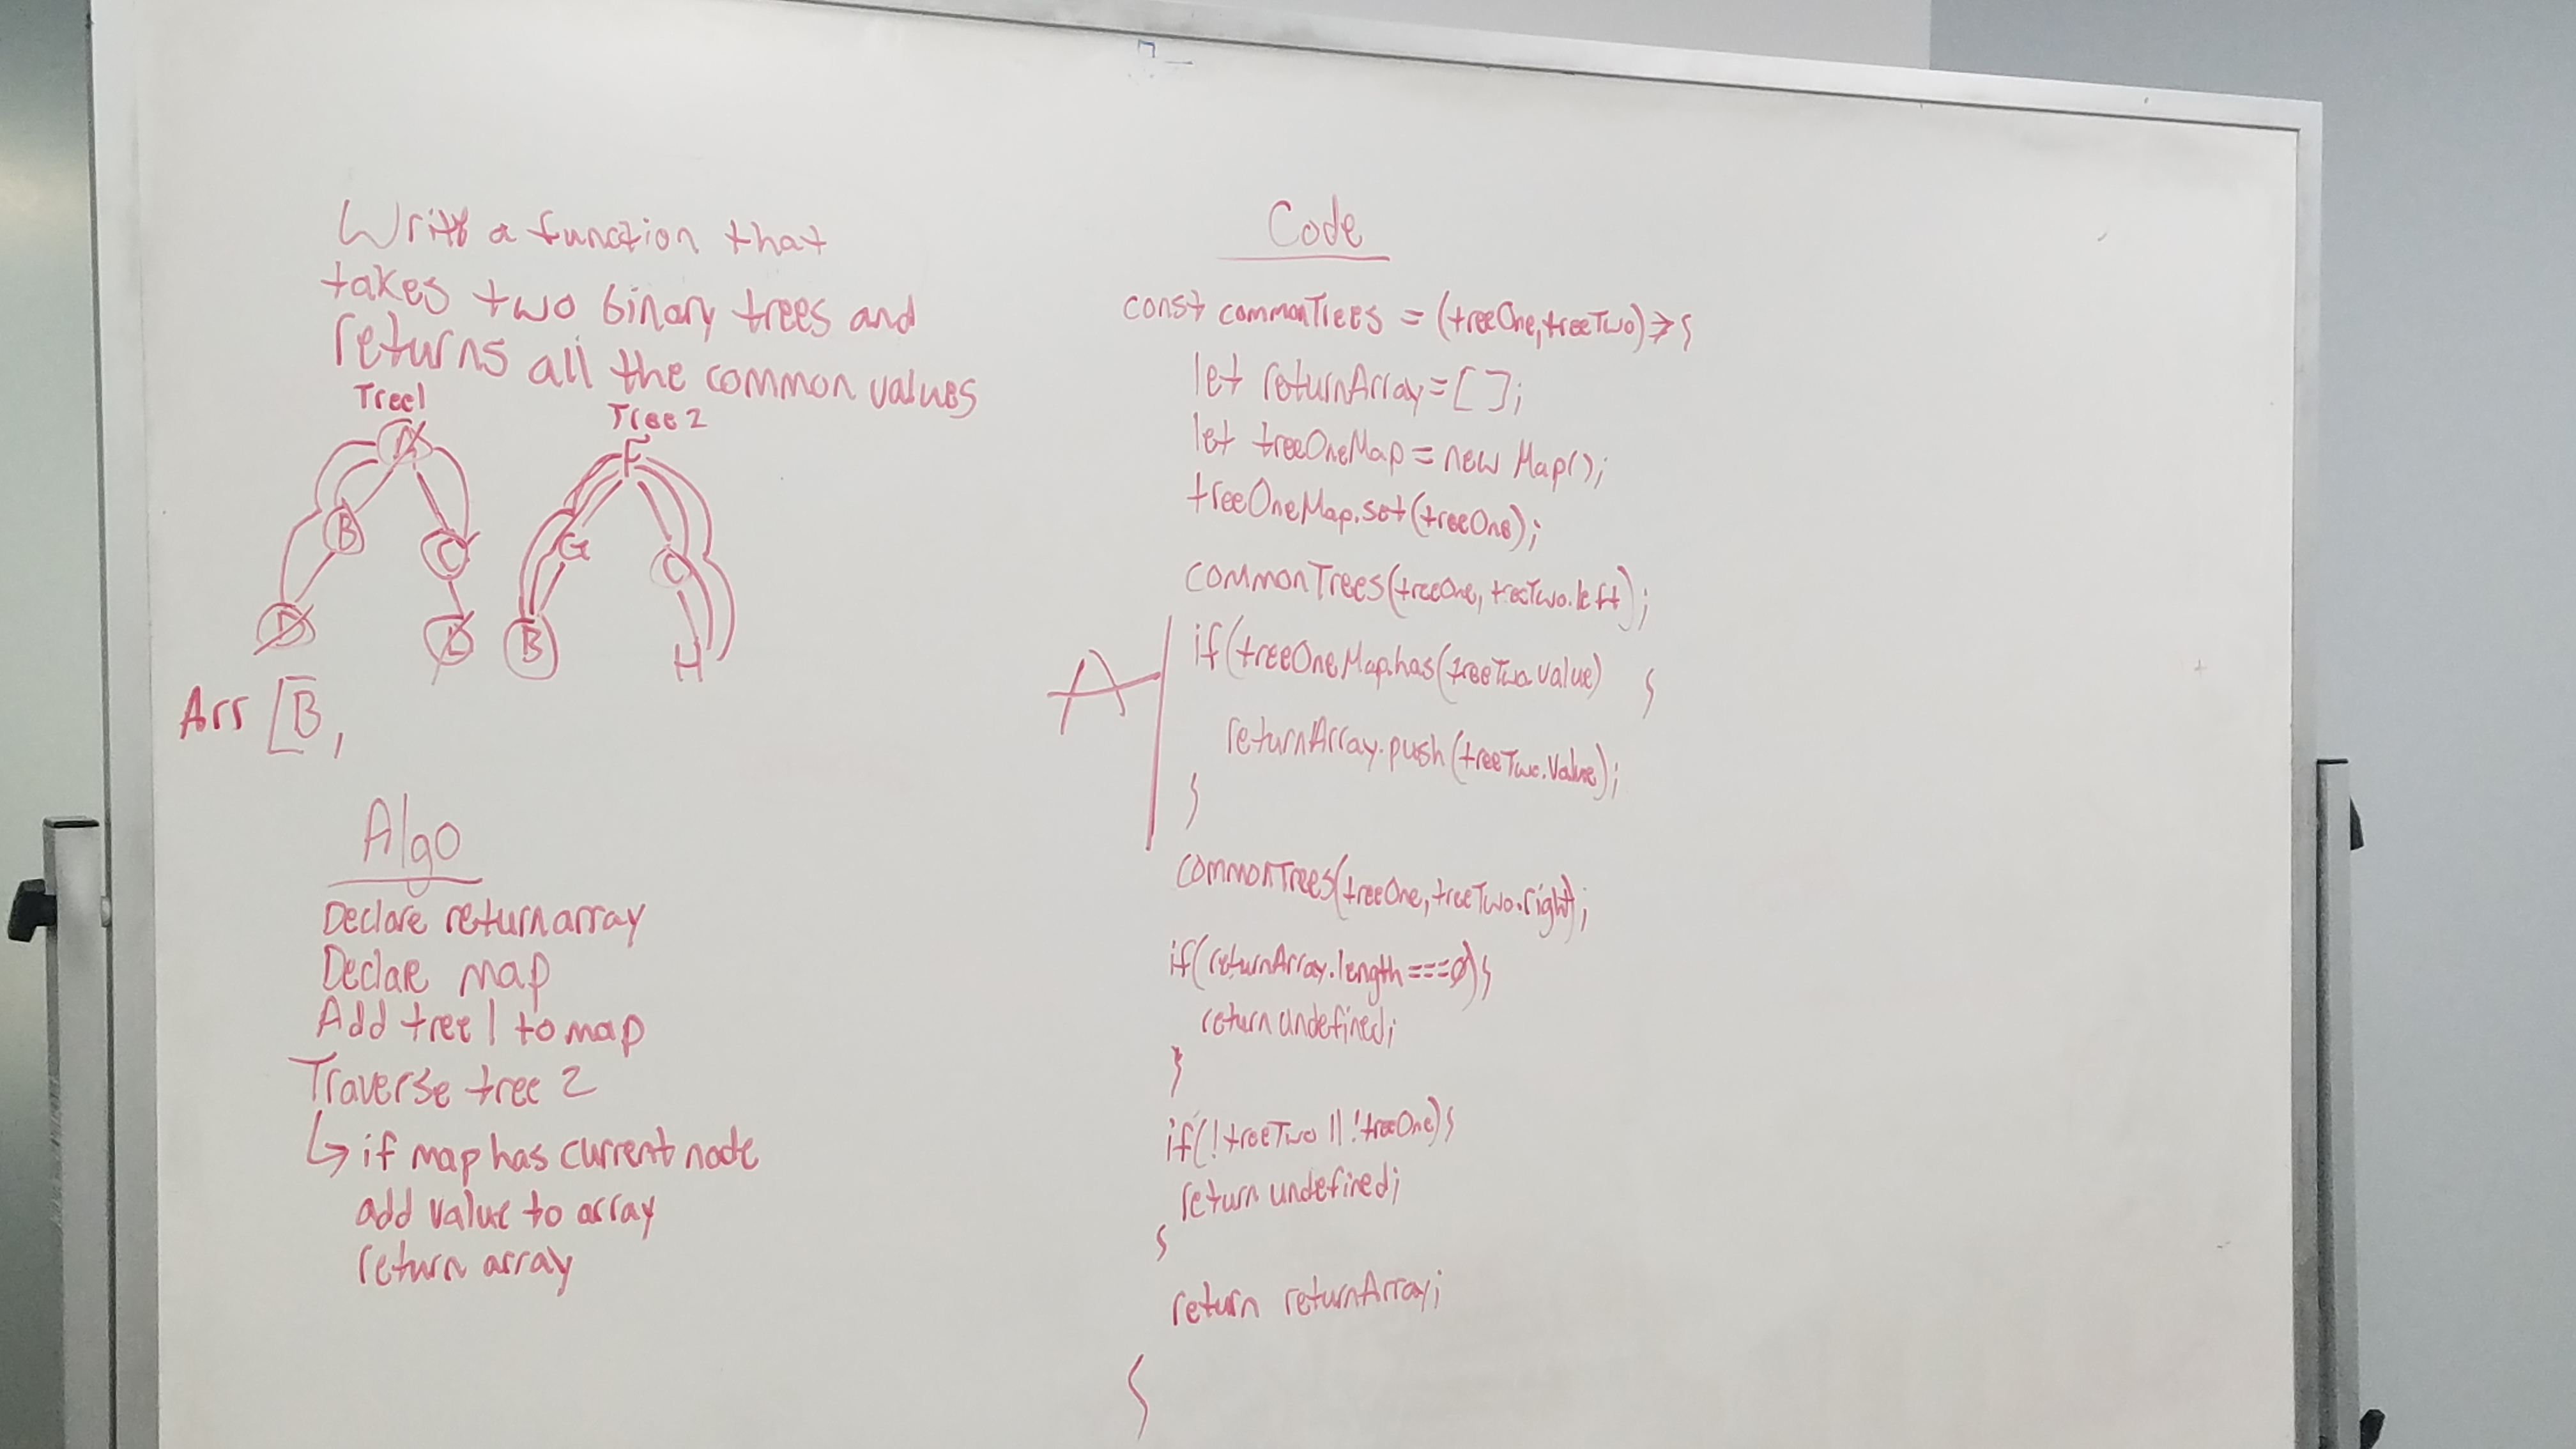 Write a function that
takes two binary trees and
returns all the common values
Tree1
Tree 2
A
F
B
C
G
C
D
E
B
H
Arr [B,
Algo
Declare return array
Declare map
Add tree 1 to map
Traverse tree 2
↳ if map has current node
add value to array
return array
Code
const commonTrees = (treeOne, treeTwo) => {
let returnArray = [];
let treeOneMap = new Map();
treeOneMap.set(treeOne);
commonTrees(treeOne, treeTwo.left);
A
if(treeOneMap.has(treeTwo.value) {
returnArray.push(treeTwo.value);
}
commonTrees(treeOne, treeTwo.right);
if(returnArray.length === 0){
return undefined;
}
if(!treeTwo || !treeOne){
return undefined;
}
return returnArray;
}